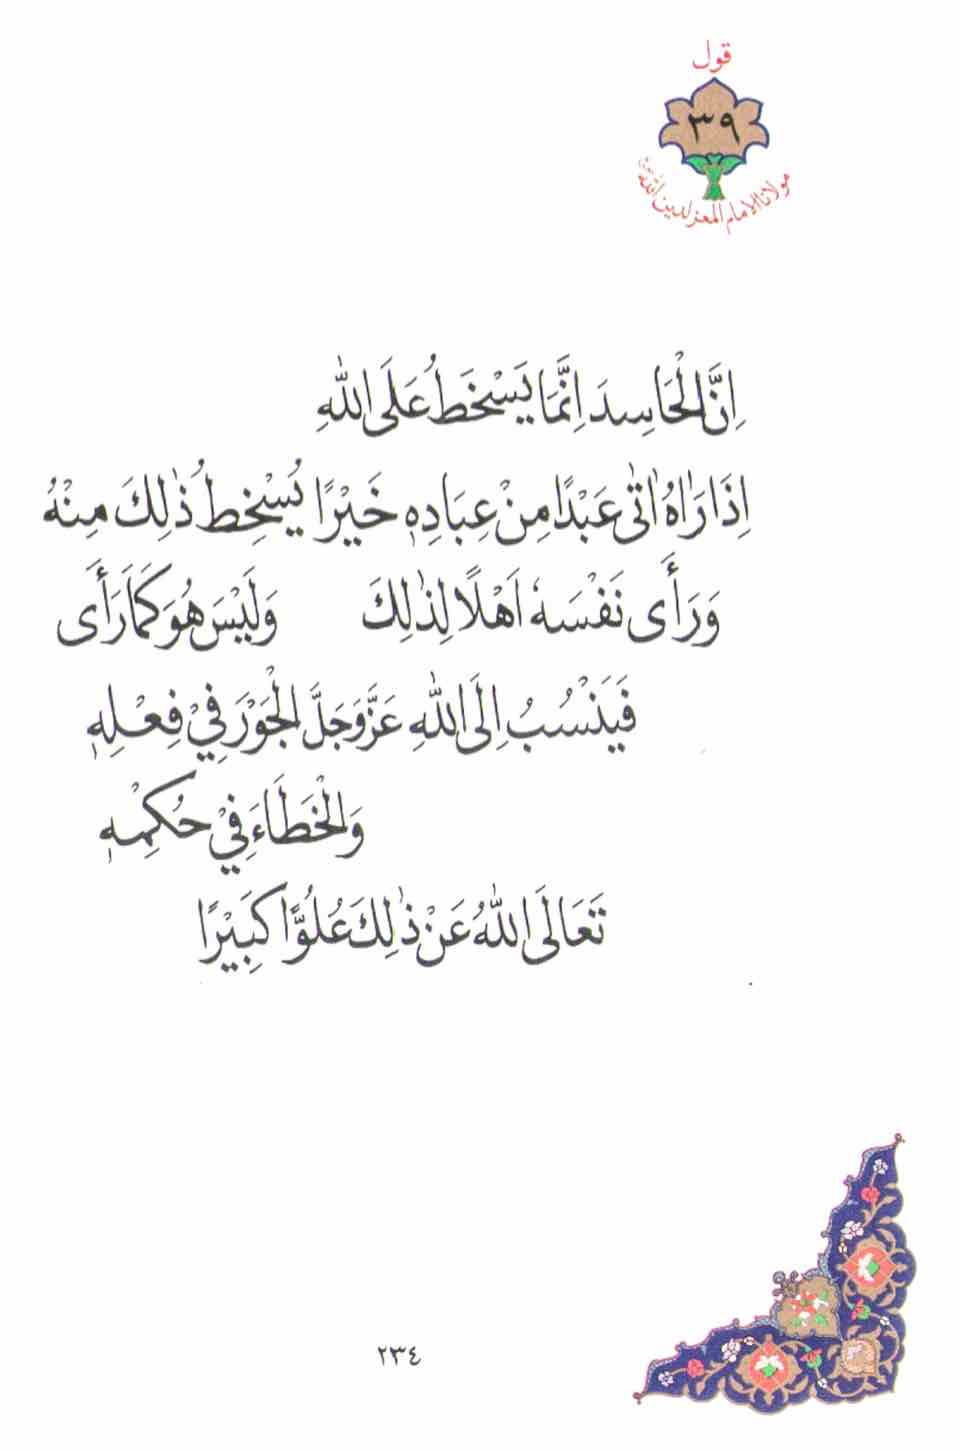 قول
٣٩
مولانا الامام المعز لدين الله
اِنَّ الْحَاسِدَ اِنَّمَا يَسْخَطُ عَلَى اللهِ
اِذَا رَاٰهُ اٰتٰى عَبْدًا مِنْ عِبَادِهٖ خَيْرًا يُسْخِطُ ذٰلِكَ مِنْهُ
وَرَأَى نَفْسَهٗ اَهْلًا لِذٰلِكَ وَلَيْسَ هُوَ كَمَا رَأَى
فَيَنْسُبُ اِلَى اللهِ عَزَّ وَجَلَّ الْجَوْرَ فِيْ فِعْلِهٖ
وَالْخَطَاءَ فِيْ حُكْمِهٖ
تَعَالَى اللهُ عَنْ ذٰلِكَ عُلُوًّا كَبِيْرًا
٢٣٤